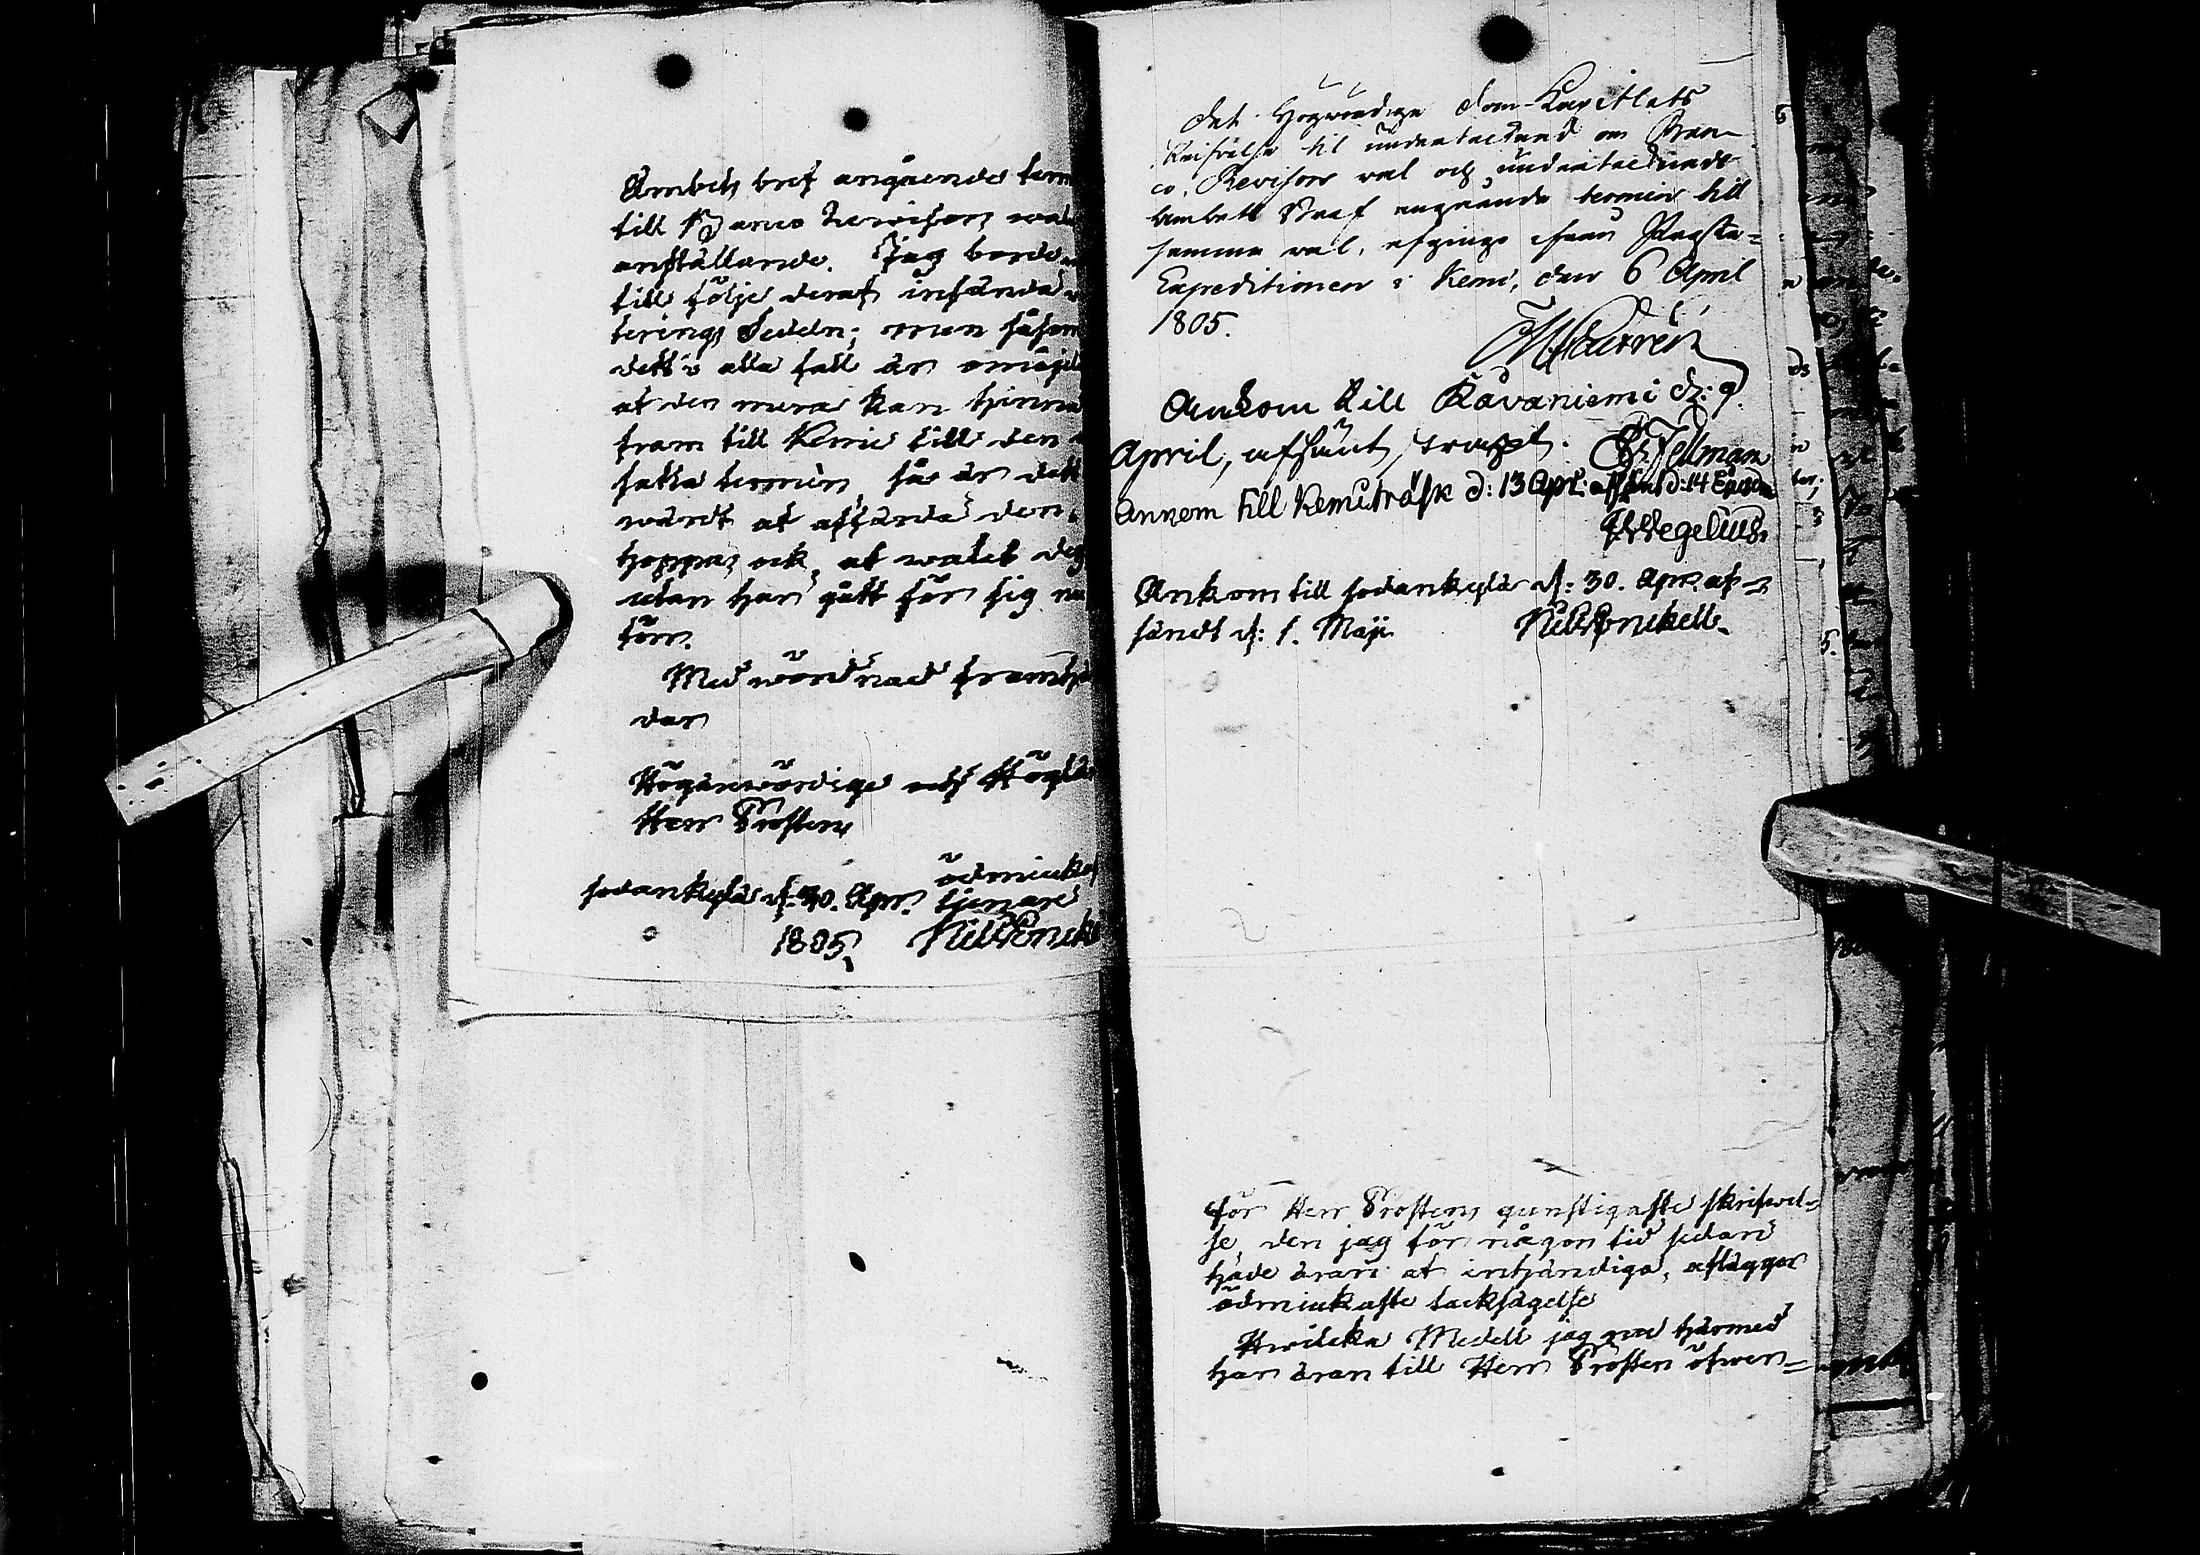 Ambets bref angående term
till Banco Revisors wal
anställande. Jag borde
till följe deraf insända
terings Sedeln; men såsom
dett i alla fall är omöjel
at den mera kan hinna
fram till Kemi till den
satta termin, så är dett
wärdt at afsända den.
hoppas ock, at walet des
utan har gått för sig
förr.
Med wördnad framhär
dar
Högärewördige och Högl
Herr Prostens
ödmiukas
Sodankylä d. 30. Apr. tjenare
1805.
Det Högwördige Dom-Capitlets
Skrifvelse til undertecknad om Ban-
co Revisors val och undertecknads
Embets Bref angående termin till
samma val, afgingo ifrån Prosts-
Expeditionen i Kemi, den 6 April
1805.
Castrén
Ankom till Rovaniemi d: 9
April, afsändt straxt. Fellman
Ankom till Kemiträsk d: 13 Apr: afsänt d: 14
Wegelius.
Ankom till Sodankylä d: 30. Apr. af-
sändt d: 1. Maji
för Herr Prostens gunstigaste skrifwel-
se, den jag för någon tid sedan
hade äran at inhändiga, aflägger
ödmiukaste tacksägelse
Hwilcka Medell jag nu härmed
har äran till Herr Prosten öfwer-